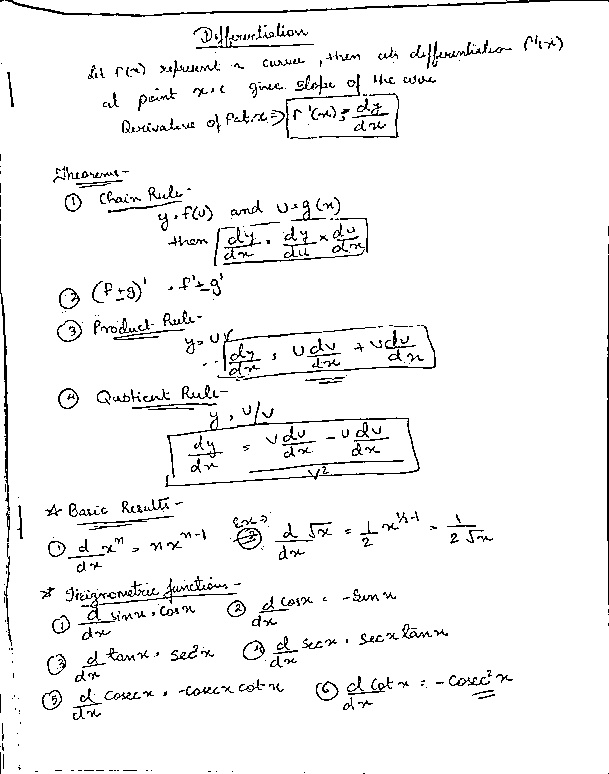 Differentiation
Let f(x) represent a curve, then its differentiation f'(x)
at point x=c gives slope of the curve
Derivative of f at x => f'(x) = dy/dx
Theorems -
① Chain Rule -
y = f(u) and u = g(x)
then dy/dx = dy/du × du/dx
② (f ± g)' = f' ± g'
③ Product Rule -
y = uv
dy/dx = u dv/dx + v du/dx
④ Quotient Rule -
y = u/v
dy/dx = (v du/dx - u dv/dx)/v²
* Basic Results -
① d/dx xⁿ = n xⁿ⁻¹ Ex => d/dx √x = 1/2 x^(1/2-1) = 1/(2√x)
* Trignometric functions -
① d/dx sinx = cosx ② d/dx cosx = -sinx
③ d/dx tanx = sec²x ④ d/dx secx = secx tanx
⑤ d/dx cosecx = -cosecx cotx ⑥ d/dx cotx = -cosec²x